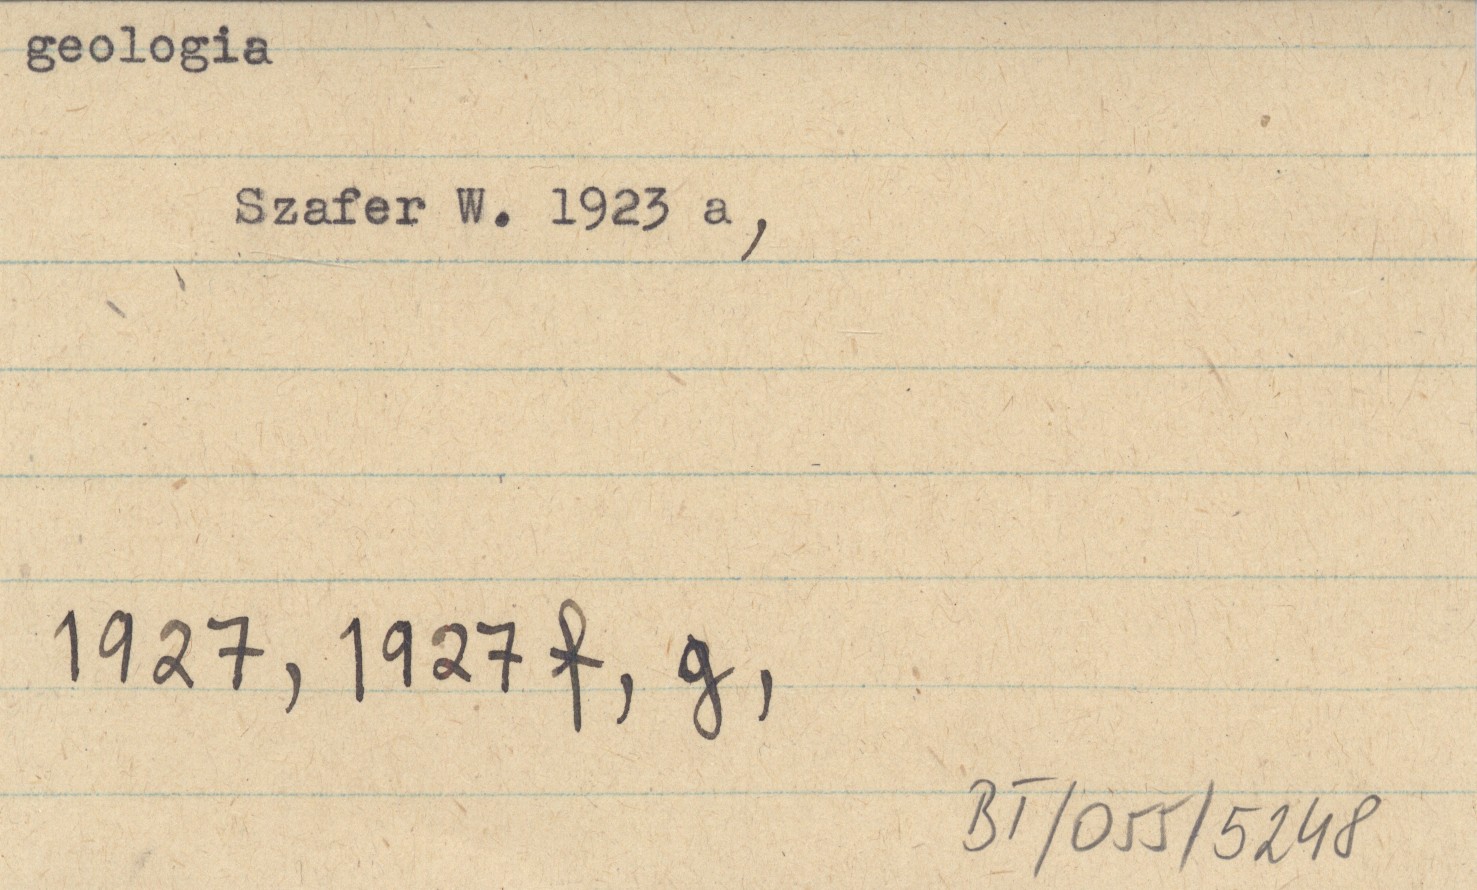 geologia
Szafer W. 1923 a,
1927, 1927 f, g,
BT/055/5248